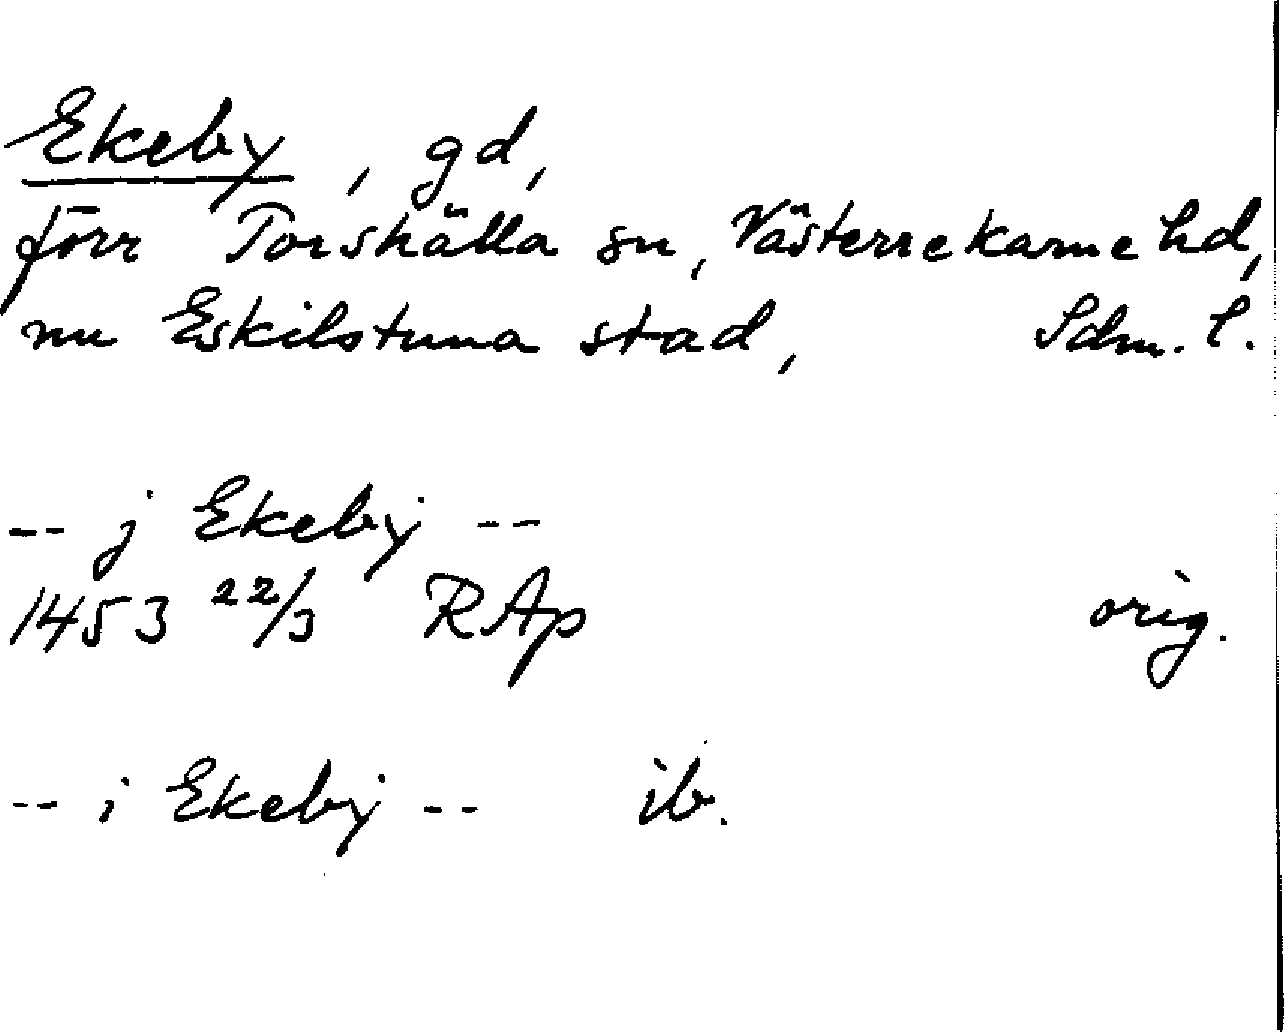 Ekeby, gd,
förr Torshälla sn, Västerrekarne hd,
nu Eskilstuna stad, Sdm. l.
-- j Ekeby --
1453 22/3 RAp orig.
-- i Ekeby -- ib.